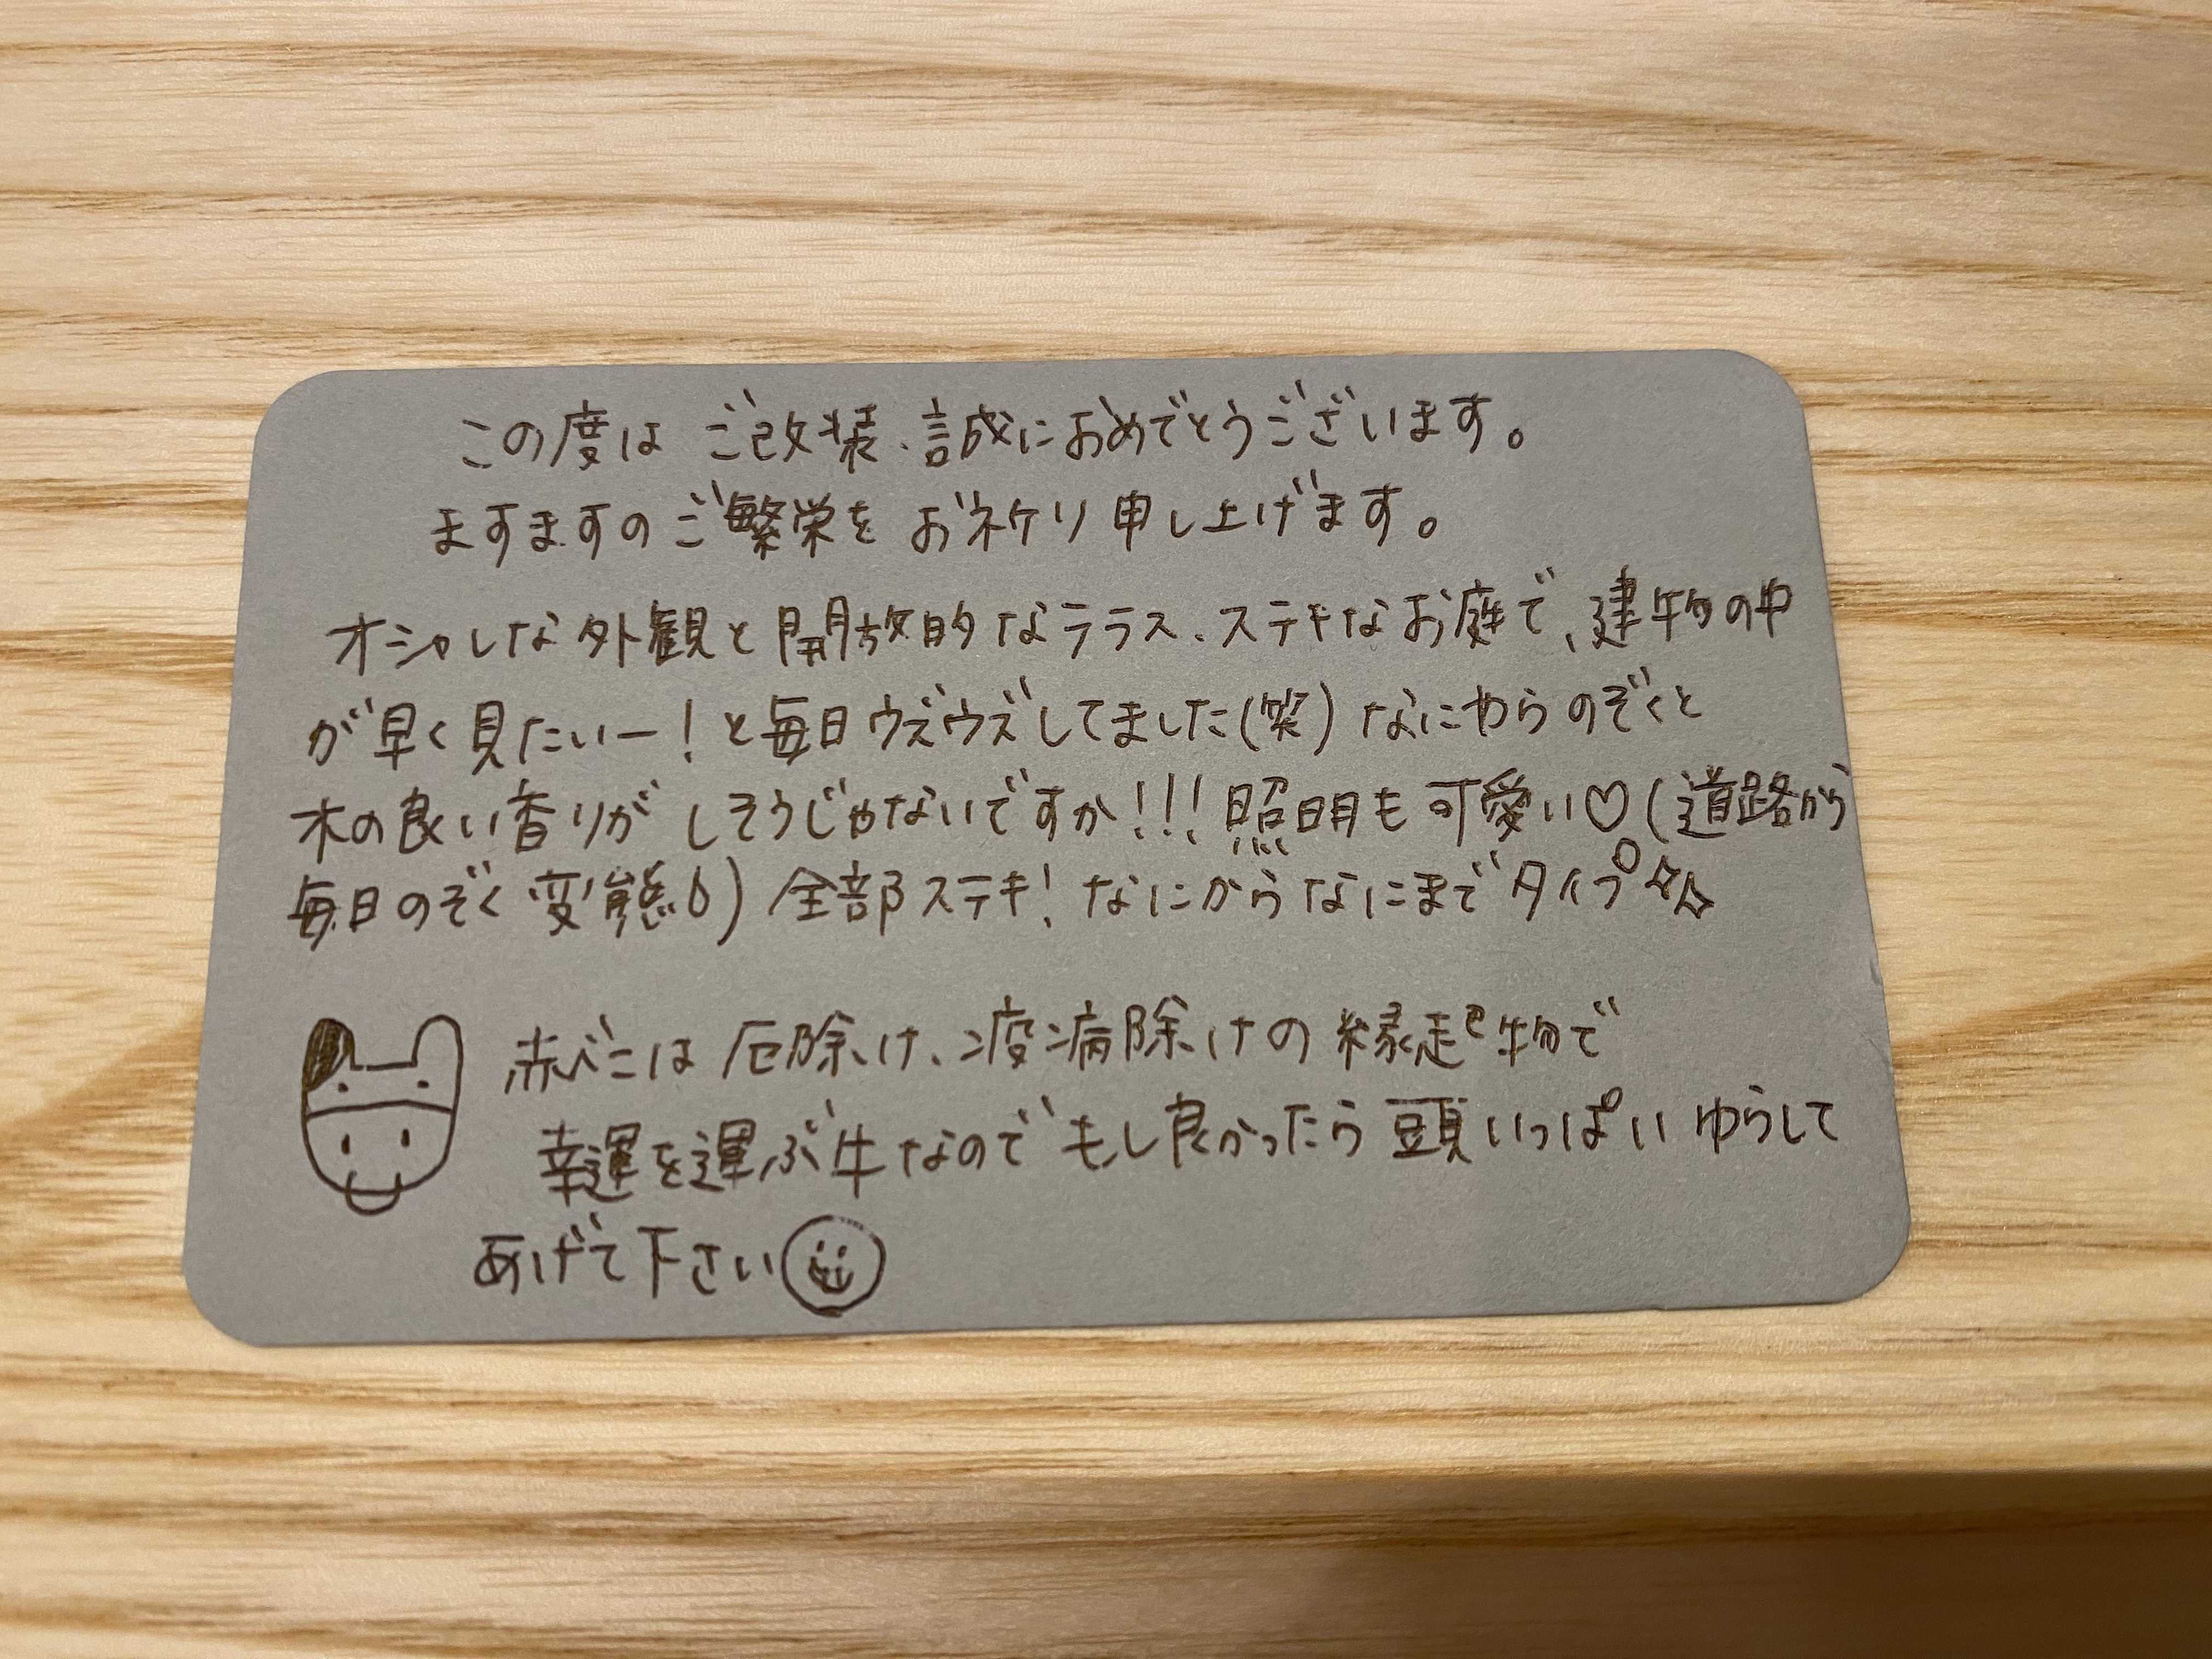 この度は ご改装、誠におめでとうございます。
ますますのご繁栄を お祈り申し上げます。
オシャレな外観と開放的なテラス、ステキなお庭で、建物の中
が早く見たいー!と毎日ウズウズしてました(笑) なにやらのぞくと
木の良い香りがしそうじゃないですか!!!照明も可愛い♡(道路から
毎日のぞく変態) 全部ステキ!なにからなにまでタイプ
赤べこは厄除け、疫病除けの縁起物で
幸運を運ぶ牛なのでもし良かったら頭いっぱいゆらして
あげて下さい